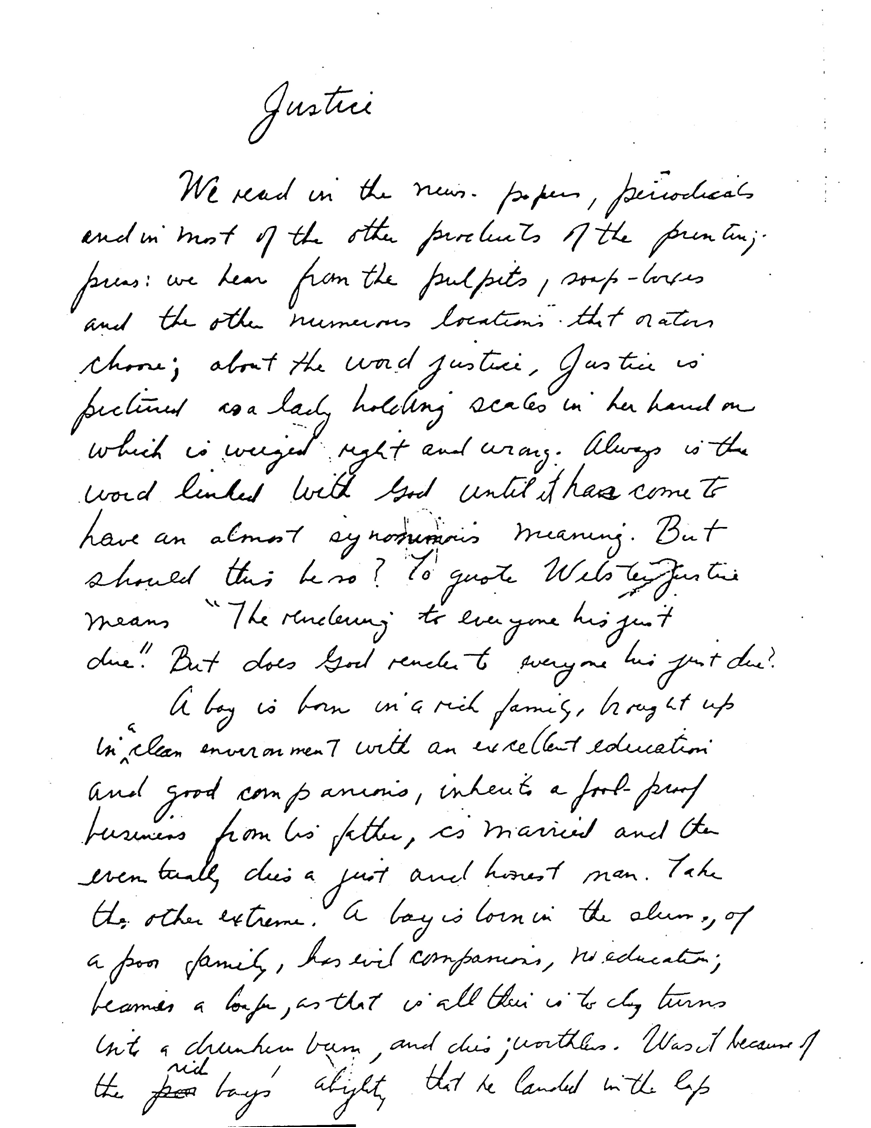 Justice
We read in the news-papers, periodicals
and in most of the other products of the printing-
press: we hear from the pulpits, soap-boxes
and the other numerous locations that orators
choose; about the word justice, Justice is
pictured as a lady holding scales in her hand on
which is weiged right and wrong. Always is the
word linked with God until it has come to
have an almost synonimois meaning. But
should this be so? To quote Webster, Justice
means "The rendering to everyone his just
due". But does God render to everyone his just due?
A boy is born in a rich family, brought up
in a clean environment with an excellent education
and good companions, inherits a fool-proof
business from his father, is married and then
eventually dies a just and honest man. Take
the other extreme. A boy is born in the slums, of
a poor family, has evil companions, no education;
becomes a loafer, as that is all their is to do, turns
into a drunken bum, and dies, worthless. Was it because of
the rich boys' abilighty that he landed in the lap